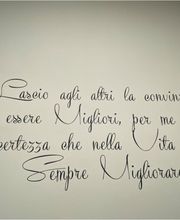 Lascio agli altri la convin
essere Migliori, per me
certezza che nella Vita
Sempre Migliorare